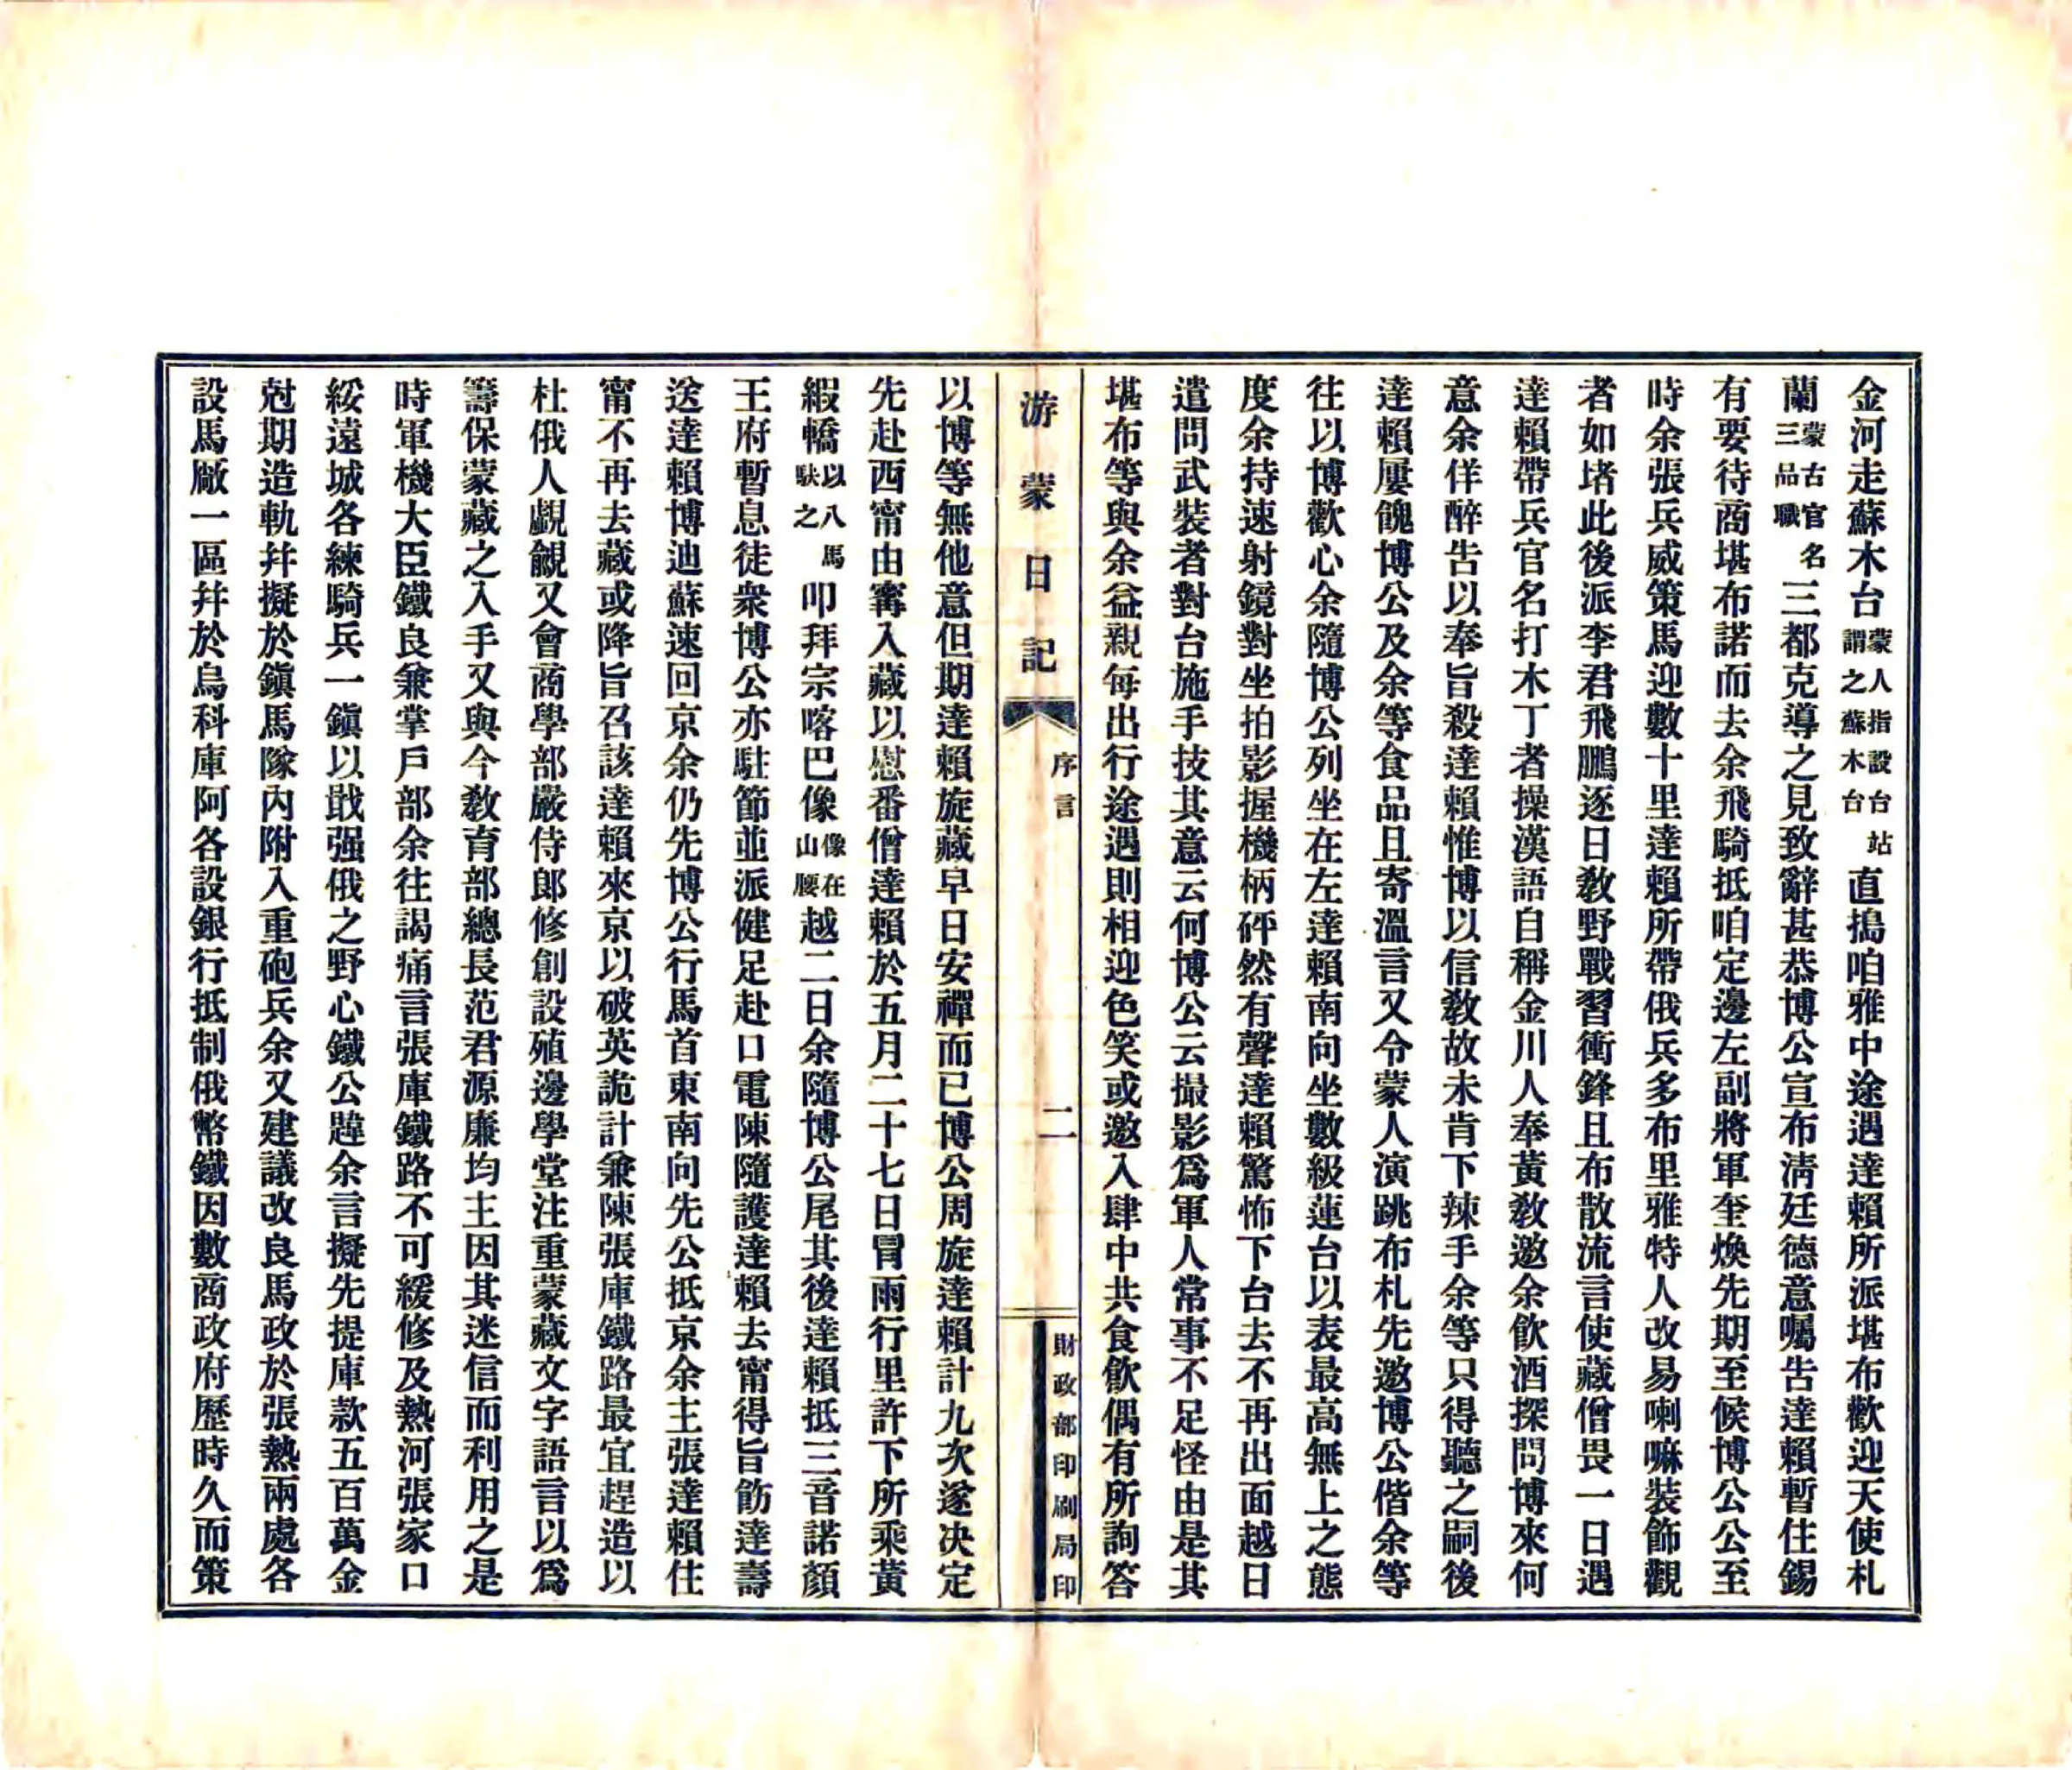 金河走蘇木台蒙人指設台站謂之蘇木台直搗咱雅中途遇達賴所派堪布歡迎天使札
蘭蒙古官名三品職三都克導之見致辭甚恭博公宣布淸廷德意囑告達賴暫住錫
有要待商堪布諾而去余飛騎抵咱定邊左副將軍奎煥先期至候博公公至
時余張兵威策馬迎數十里達賴所帶俄兵多布里雅特人改易喇嘛裝飾觀
者如堵此後派李君飛鵬逐日敎野戰習衝鋒且布散流言使藏僧畏一日遇
達賴帶兵官名打木丁者操漢語自稱金川人奉黃敎邀余飮酒探問博來何
意余佯醉告以奉旨殺達賴惟博以信敎故未肯下辣手余等只得聽之嗣後
達賴屢餽博公及余等食品且寄溫言又令蒙人演跳布札先邀博公偕余等
往以博歡心余隨博公列坐在左達賴南向坐數級蓮台以表最高無上之態
度余持速射鏡對坐拍影握機柄砰然有聲達賴驚怖下台去不再出面越日
遣問武裝者對台施手技其意云何博公云撮影爲軍人常事不足怪由是其
堪布等與余益親每出行途遇則相迎色笑或邀入肆中共食飮偶有所詢答
游蒙日記
序言
二
財政部印刷局印
以博等無他意但期達賴旋藏早日安禪而已博公周旋達賴計九次遂决定
先赴西甯由寗入藏以慰番僧達賴於五月二十七日冒雨行里許下所乘黃
緞轎以八馬馱之叩拜宗喀巴像像在山腰越二日余隨博公尾其後達賴抵三音諾顏
王府暫息徒衆博公亦駐節並派健足赴口電陳隨護達賴去甯得旨飭達壽
送達賴博迪蘇速回京余仍先博公行馬首東南向先公抵京余主張達賴住
甯不再去藏或降旨召該達賴來京以破英詭計兼陳張庫鐵路最宜趕造以
杜俄人覷覦又會商學部嚴侍郎修創設殖邊學堂注重蒙藏文字語言以爲
籌保蒙藏之入手又與今敎育部總長范君源廉均主因其迷信而利用之是
時軍機大臣鐵良兼掌戶部余往謁痛言張庫鐵路不可緩修及熱河張家口
綏遠城各練騎兵一鎭以戢强俄之野心鐵公韙余言擬先提庫款五百萬金
尅期造軌幷擬於鎭馬隊內附入重砲兵余又建議改良馬政於張熱兩處各
設馬廠一區幷於烏科庫阿各設銀行抵制俄幣鐵因數商政府歷時久而策